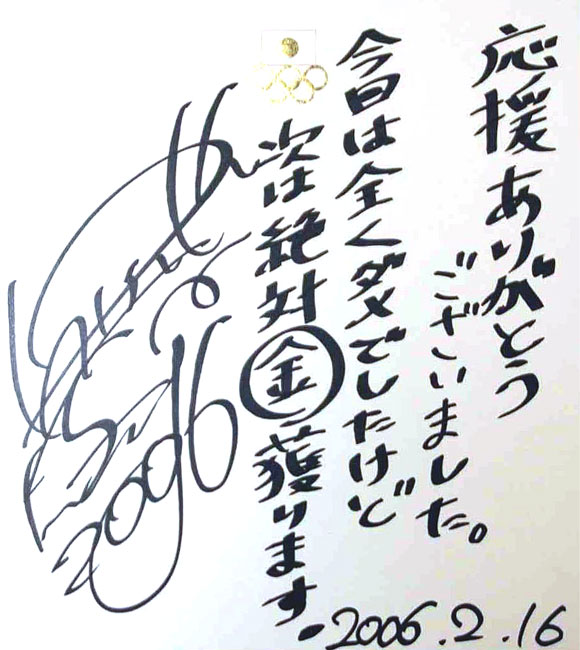 応援ありがとう
ございました。
今日は全くダメでしたけど
次は絶対金獲ります。
2006.2.16
2006